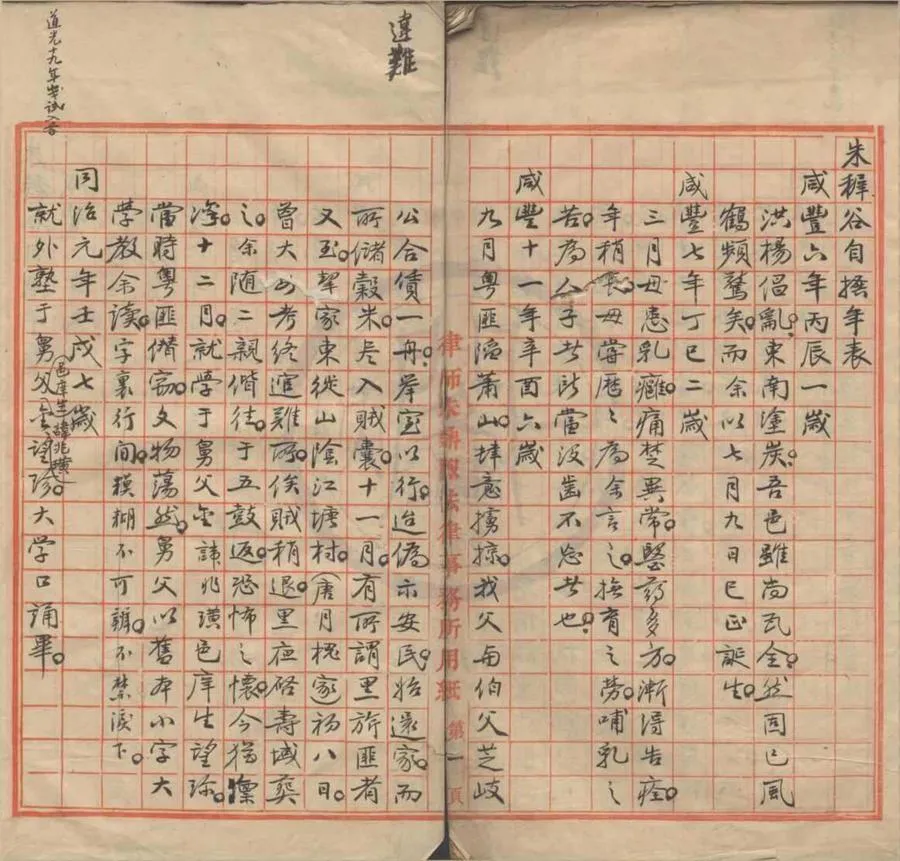 朱稺谷自撝年表
咸豐六年丙辰一歲
洪楊倡亂。東南塗炭。吾邑雖尚瓦全。然固已風
鶴頻驚矣。而余以七月九日巳正誕生。
咸豐七年丁巳二歲
三月母患乳癰。痛楚異常。醫藥多方。漸得告痊。
年稍長。母嘗歷歷為余言之。撫育之勞。哺乳之
苦。為人子者所當沒齒不忘者也。
咸豐十一年辛酉六歲
九月粵匪陷蕭山。肆意擄掠。我父與伯父芝岐
律師朱鼎 法律事務所用紙 第一頁
違難
公合賃一舟。舉室以行。迨偽示安民。始還家。而
所儲穀米。尽入賊囊。十一月。有所謂黑旂匪者
又至。挈家東從山陰江塘村。唐月槐家初八日。
曾大母考終避難所。俟賊稍退。里夜啓壽域葬
之。余隨二親偕往。于五鼓返。恐怖之懷。今猶凜
凜。十二月。就學于舅父金諱兆璜邑庠生望珍。
當時粵匪僭竊。文物蕩然。舅父以舊本小字大
學教余讀。字裏行間。模糊不可辨。不禁淚下。
同治元年壬戌七歲
就外塾于舅父金望珍。大學口誦畢。
邑庠生諱兆璜
道光十九年歲試入